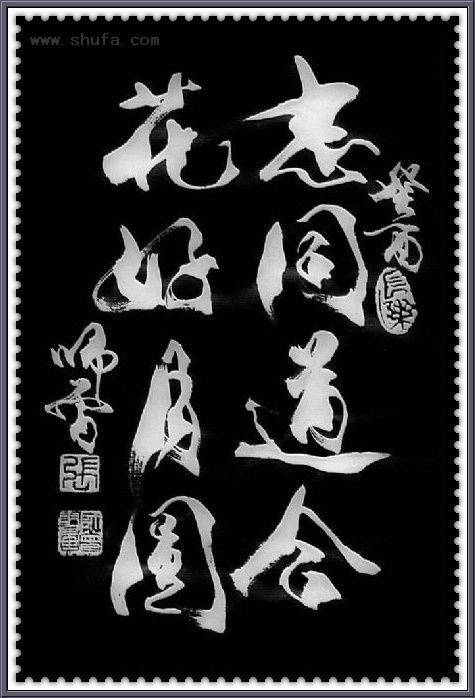 www.shufa.com
癸酉
志同道合
花好月圆
张